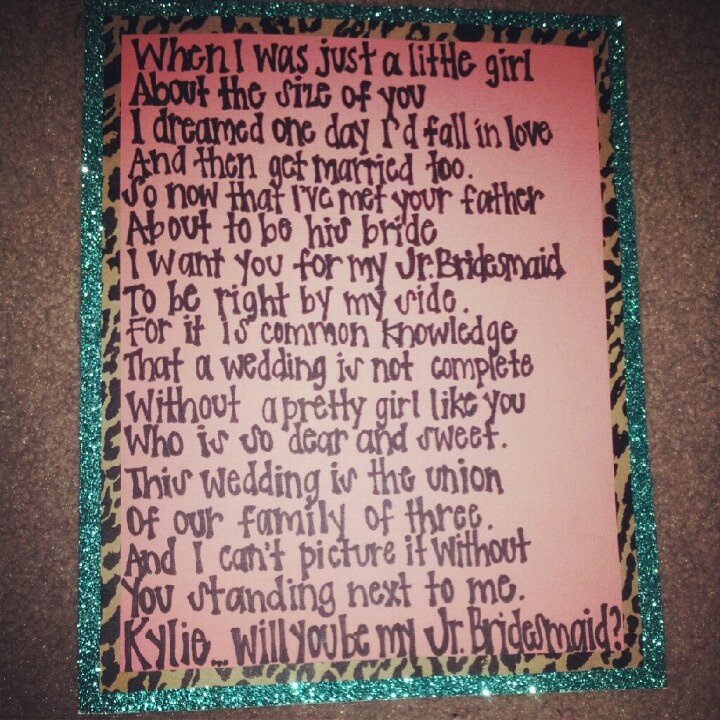 When I was just a little girl
About the size of you
I dreamed one day I'd fall in love
And then get married too.
So now that I've met your father
About to be his bride
I want you for my Jr. Bridesmaid
To be right by my side.
For it is common knowledge
That a wedding is not complete
Without a pretty girl like you
Who is so dear and sweet.
This wedding is the union
Of our family of three.
And I can't picture it without
You standing next to me.
Kylie... will you be my Jr. Bridesmaid?